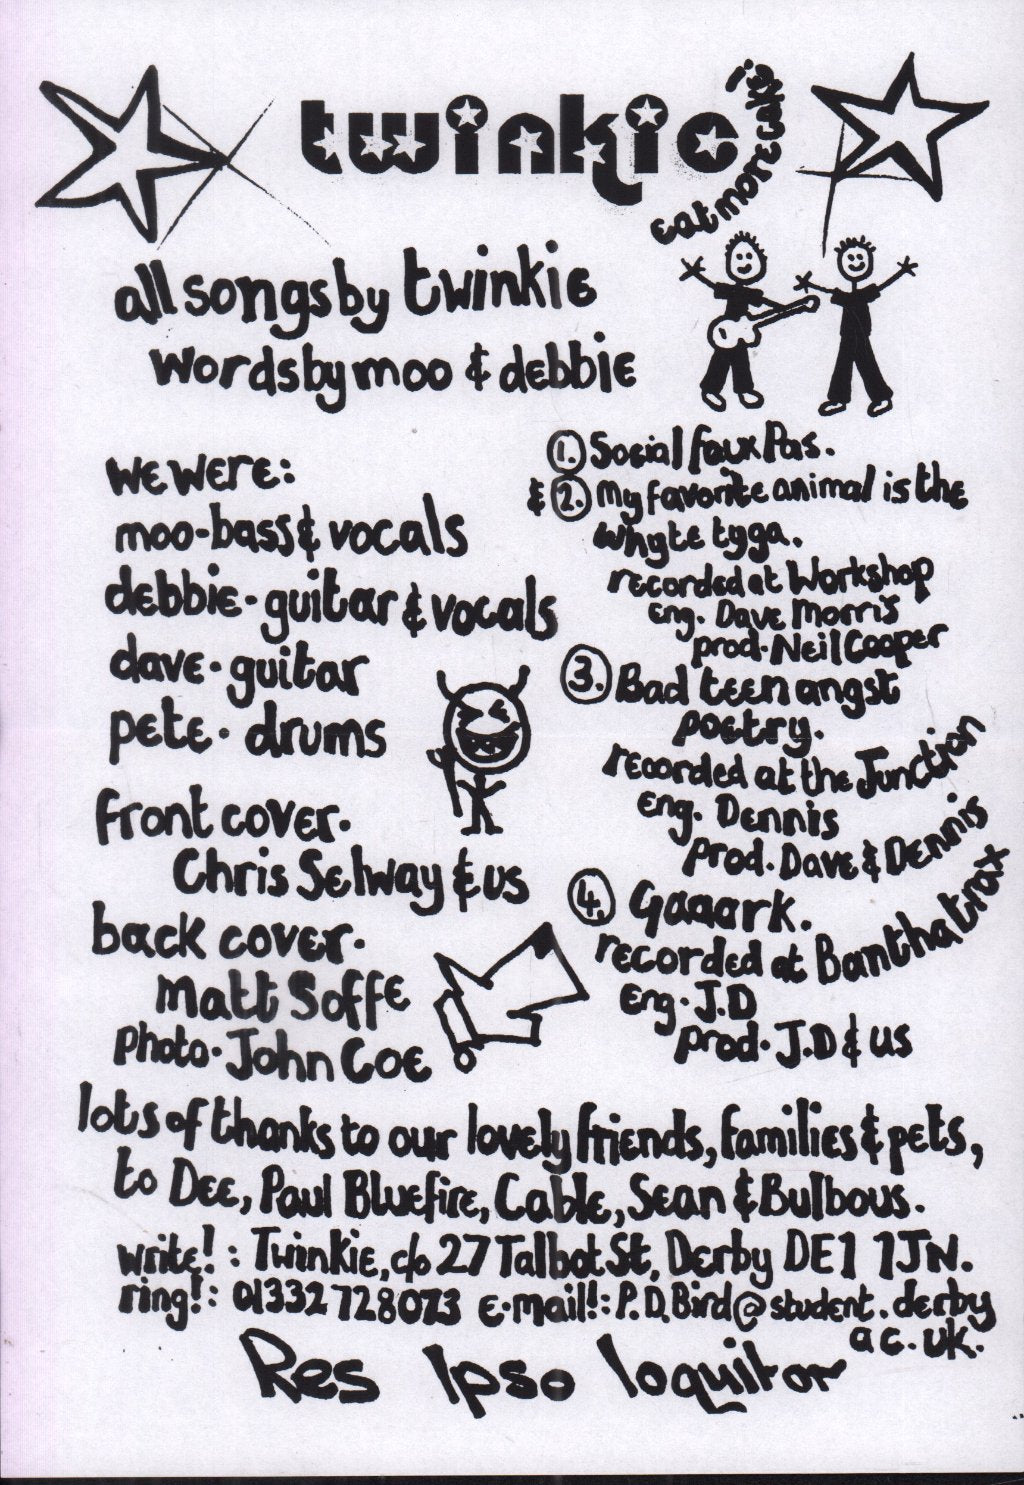 twinkie
eat more cake!
all songs by twinkie
words by moo & debbie
we were:
moo-bass & vocals
debbie-guitar & vocals
dave-guitar
pete-drums
front cover.
Chris Selway & us
back cover.
Matt Soffe
photo. John Coe
1. Social faux Pas.
& 2. My favorite animal is the
whyte tyga.
recorded at Workshop
eng. Dave Morris
prod. Neil Cooper
3. Bad teen angst
poetry.
recorded at the Junction
eng. Dennis
prod. Dave & Dennis
4. Gaaark.
recorded at Banthatrax
Eng. J.D
prod. J.D & us
lots of thanks to our lovely friends, families & pets,
to Dee, Paul Bluefire, Cable, Sean & Bulbous.
write! : Twinkie, c/o 27 Talbot St, Derby DE1 1JN.
ring! : 01332 728073 e-mail! : P.D.Bird@student.derby
ac.uk.
Res Ipso loquitor